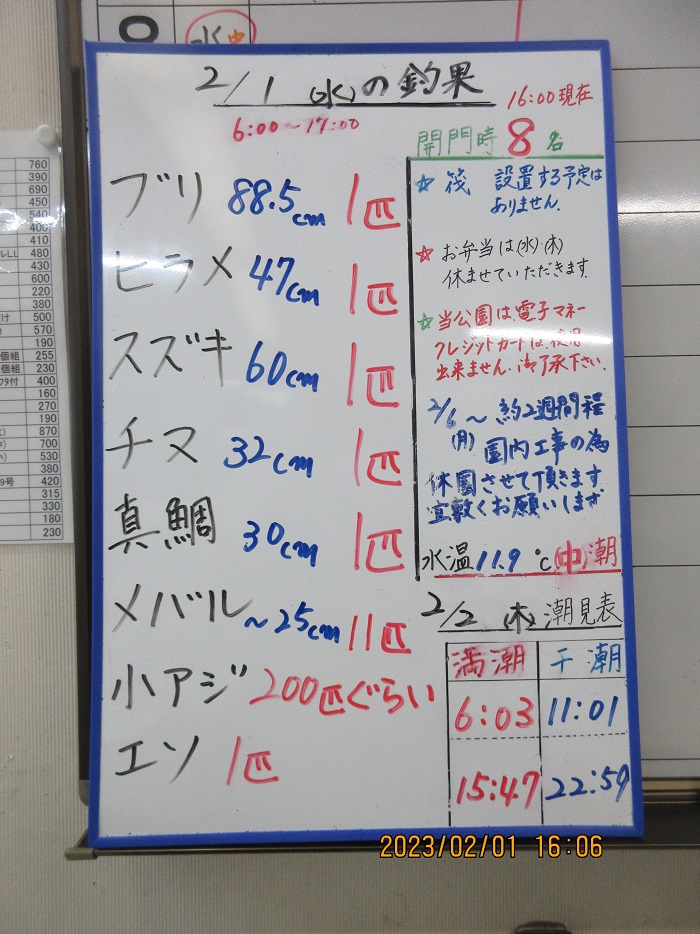 水中
2/1 (水)の釣果
6:00~17:00
16:00現在
開門時 8名
ブリ 88.5cm 1匹
ヒラメ 47cm 1匹
スズキ 60cm 1匹
チヌ 32cm 1匹
真鯛 30cm 1匹
メバル ~25cm 11匹
小アジ 200匹ぐらい
エソ 1匹
☆筏 設置する予定は
ありません。
☆お弁当は(水)・(木)
休ませていただきます。
☆当公園は、電子マネー
クレジットカードは、使用
出来ません。御了承下さい。
2/6~約2週間程
(月)園内工事の為
休園させて頂きます
宜敷くお願いします
水温11.9℃ (中)潮
2/2 (木) 潮見表
満潮 干潮
6:03 11:01
15:47 22:59
760
390
690
450
540
400
410
ルLL 480
430
600
220
380
け 500
570
190
個組 255
個組 230
フタ付 400
160
270
190
870
700
530
380
9号 420
315
330
180
230
2023/02/01 16:06